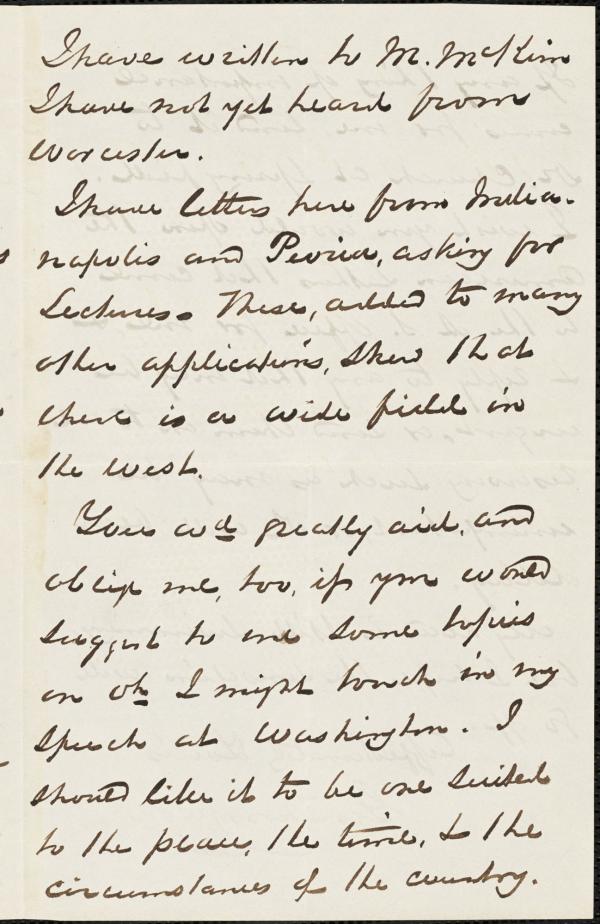 I have written to M. McKim
I have not yet heard from
Worcester.
I have letters here from India-
napolis and Peoria, asking for
Lectures. These, added to many
other applications, shew that
there is a wide field in
the west.
You wd greatly aid, and
oblige me, too, if you would
suggest to me some topics
on wh I might touch in my
speech at Washington. I
should like it to be one suited
to the place, the time, & the
circumstances of the country.